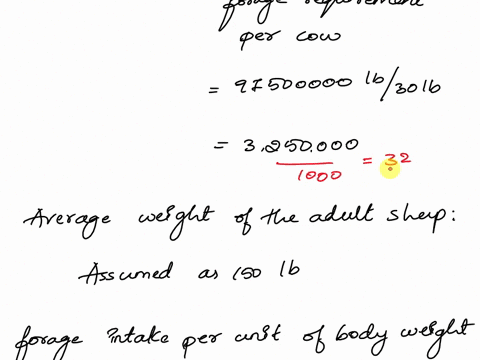 forage requirement
per cow
= 97500000 lb/30lb
= 3,250,000/1000 = 32
Average weight of the adult sheep:
Assumed as 150 lb
forage intake per unit of body weight